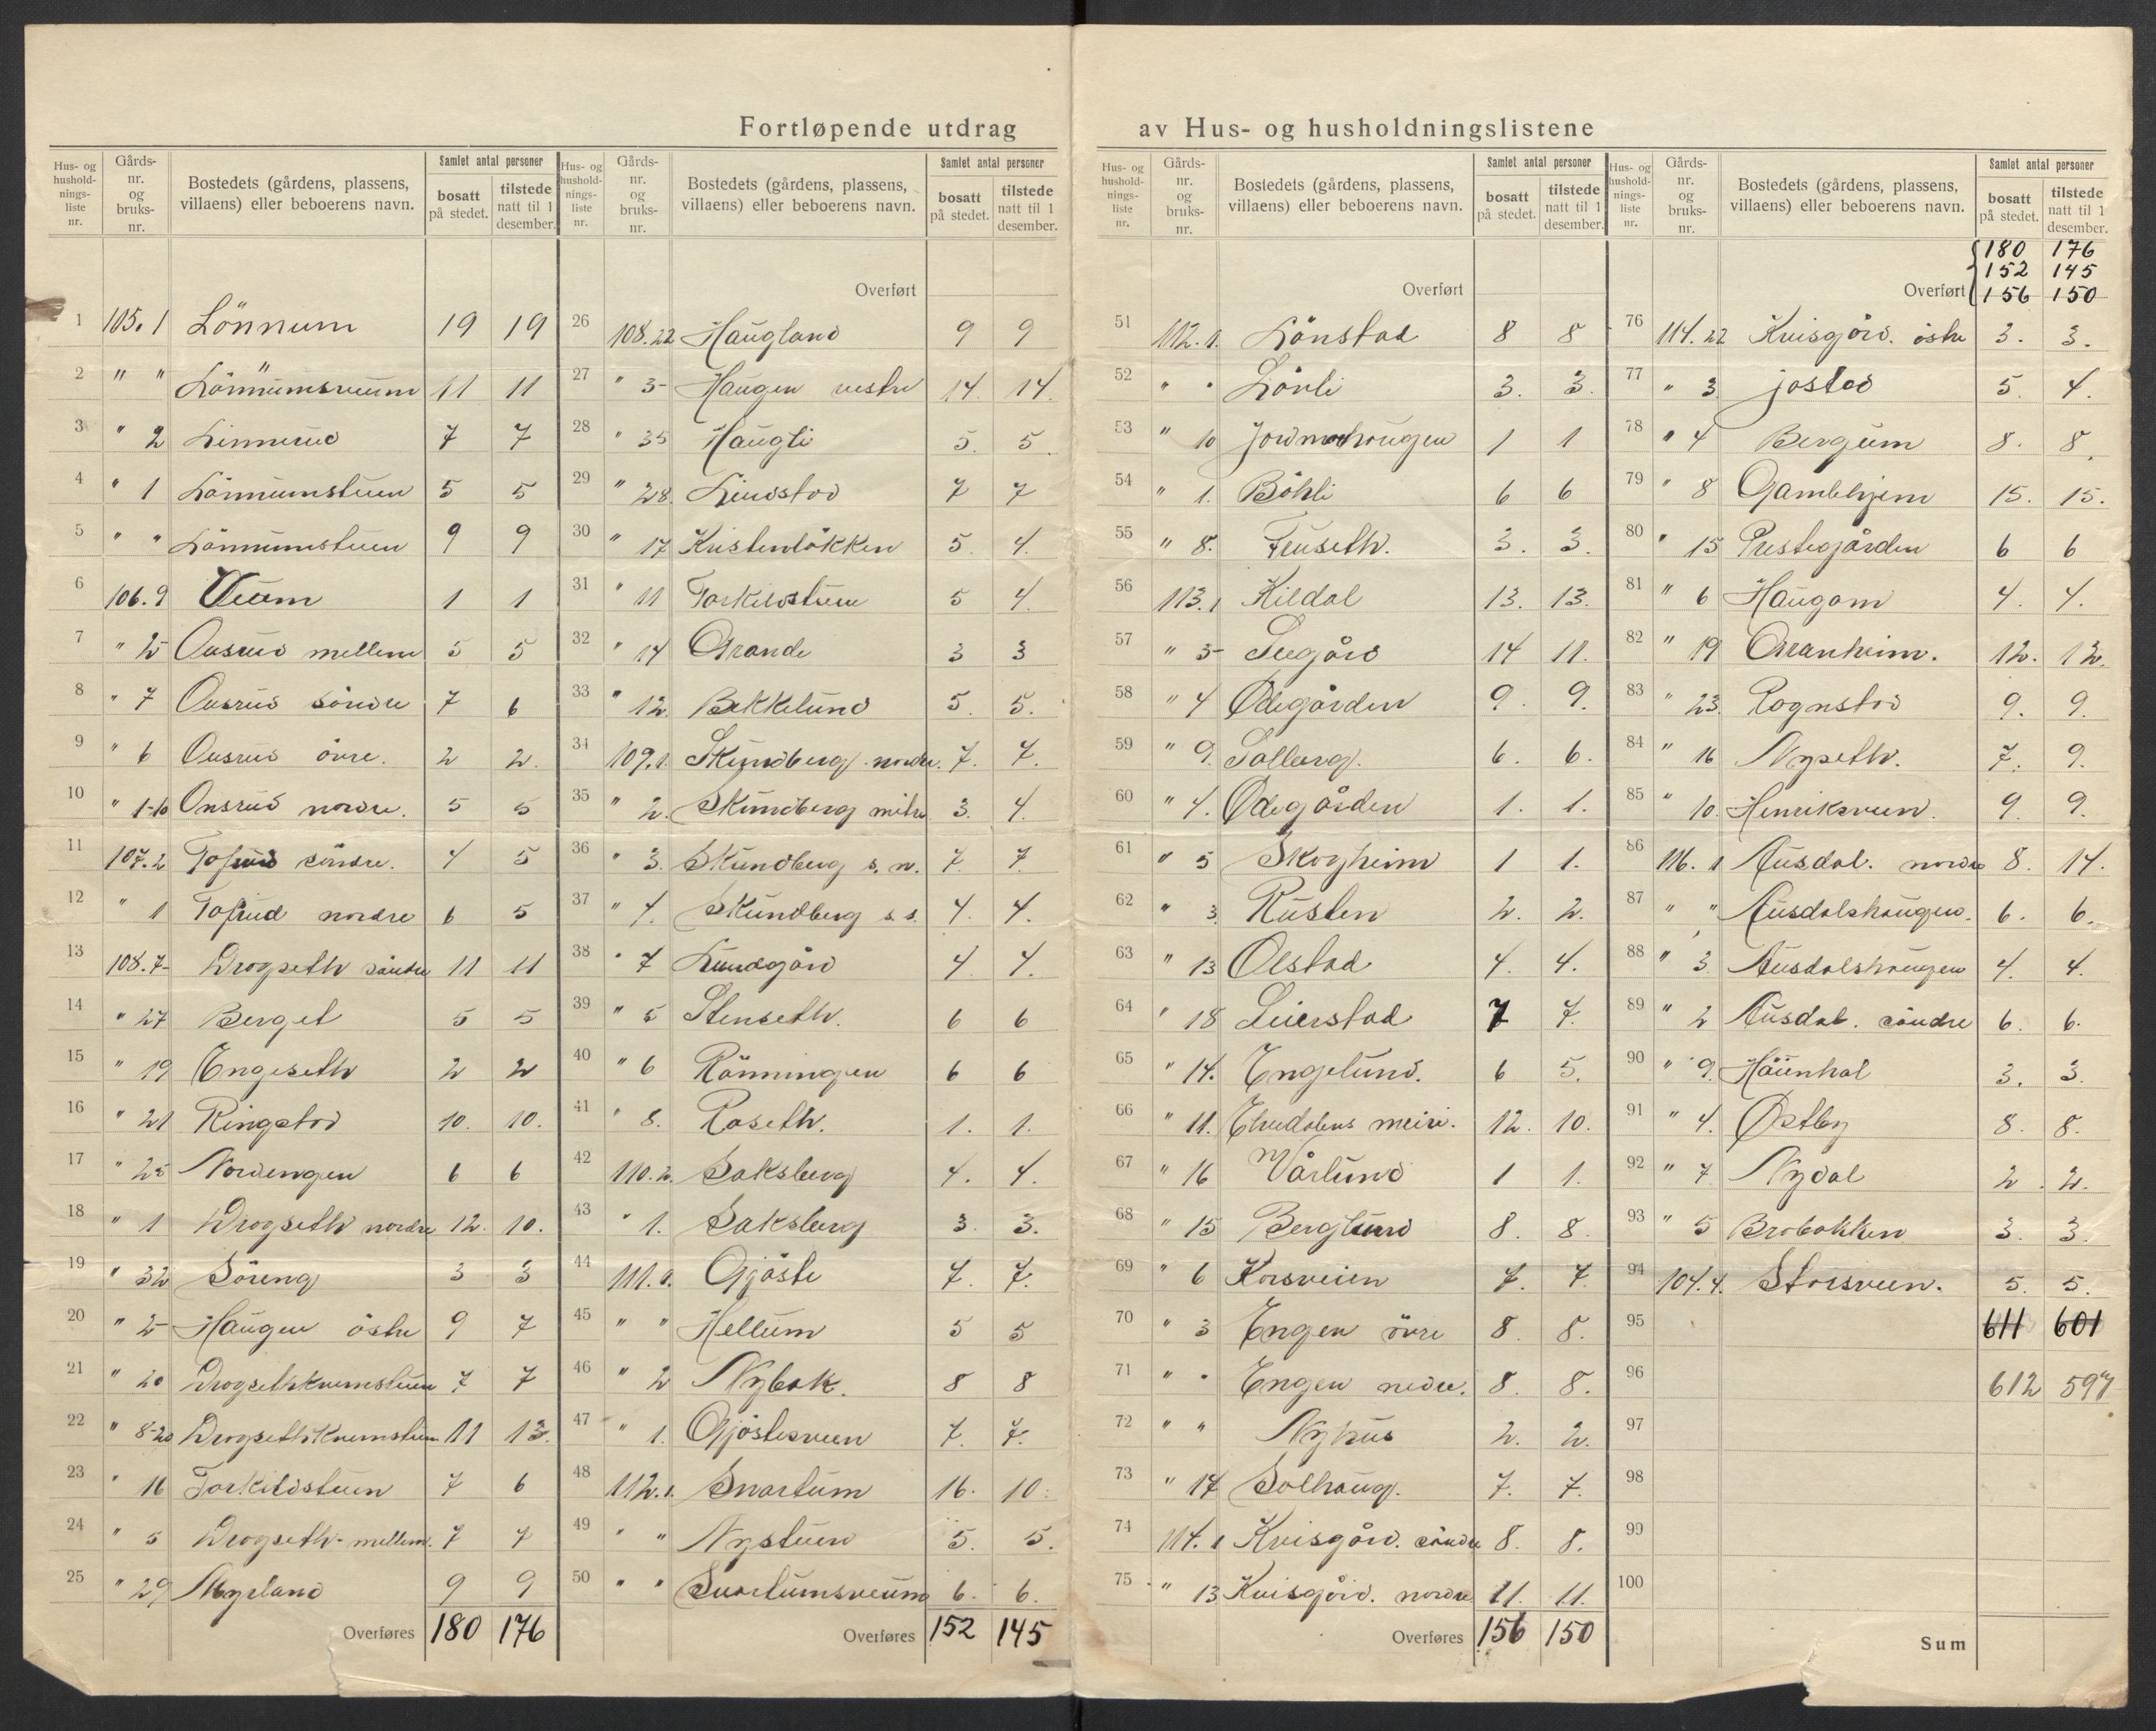 Fortløpende utdrag av Hus- og husholdningslistene
Hus- og husholdnings-liste nr. Gårds-nr. og bruks-nr. Bostedets (gårdens, plassens, villaens) eller beboerens navn. Samlet antal personer bosatt på stedet. tilstede natt til 1 desember.
1 105. 1 Lönnum 19 19
2 " " Lönnumsveum 11 11
3 " 2 Linnerud 7 7
4 " 1 Lönnumstuen 5 5
5 " " Lönnumstuen 9 9
6 106. 9 Veum 1 1
7 " 2 Onsrud mellem 5 5
8 " 7 Onsrud söndre 7 6
9 " 6 Onsrud övre. 2 2.
10 " 1-10 Onsrud nordre. 5 5
11 107. 2 Tofsrud söndre. 4 5
12 " 1 Tofsrud nordre 6 5
13 108. 7- Drogseth söndre 11 11
14 " 27 Berget 5 5
15 " 19 Engeseth 2 2
16 " 21 Ringstad 10. 10.
17 " 25 Nordengen 6 6
18 " 1 Drogseth nordre 12. 10.
19 " 32 Söreng 3 3
20 " 2 Haugen östre 9 7
21 " 20 Drogsethkvernstuen 7 7
22 " 8-20 Drogsethkvernstuen 11 13.
23 " 16 Torkildstuen 7 6
24 " 5 Drogseth-mellem. 7 7
25 " 29 Myrland 9 9
Overføres 180 176
Hus- og husholdnings-liste nr. Gårds-nr. og bruks-nr. Bostedets (gårdens, plassens, villaens) eller beboerens navn. Samlet antal personer bosatt på stedet. tilstede natt til 1 desember.
Overført
26 108. 22 Haugland 9 9
27 " 3- Haugen vestre 14. 14.
28 " 35 Haugli 5. 5.
29 " 28. Lindstad 7 7
30 " 17 Kristenlökken 5. 4.
31 " 11 Torkildstuen 5 4.
32 " 14 Grande 3 3
33 " 12. Bekkelund 5. 5.
34 109. 1. Skundberg nordre. 7. 7.
35 " 2. Skundberg mitre 3. 4.
36 " 3. Skundberg s. n. 7. 7.
37 " 4. Skundberg s. s. 4. 4.
38 " 7 Lundgård 4 4.
39 " 5 Stenseth. 6 6
40 " 6 Rönningen 6 6
41 " 8. Roseth. 1. 1.
42 110. 2. Saksberg 4. 4.
43 " 1. Saksberg 3. 3.
44 111. 1. Gjöste 7. 7.
45 " " Hellum 5 5
46 " 2 Nybak. 8 8
47 " 1. Gjöstesveen 7. 7.
48 112. 1. Svartum 16. 10.
49 " " Nystuen 5. 5.
50 " " Svartumsveum 6. 6.
Overføres 152 145
Hus- og husholdnings-liste nr. Gårds-nr. og bruks-nr. Bostedets (gårdens, plassens, villaens) eller beboerens navn. Samlet antal personer bosatt på stedet. tilstede natt til 1 desember.
Overført
51 112. 1. Lönstad 8 8
52 " " Lönli 3. 3.
53 " 10 Jordmorhaugen 1 1
54 " 1. Böhli 6 6
55 " 8. Fruseth. 3. 3.
56 113. 1 Kildal 13. 13.
57 " 3- Seegård 14 11.
58 " 4 Ødegården 9. 9.
59 " 9. Solberg. 6. 6.
60 " 4. Ødegården 1. 1.
61 " 5 Skogheim 1 1.
62 " 3 Rusten 2. 2.
63 " 13 Olstad 4. 4.
64 " 18 Seierstad 7 7.
65 " 14. Engelund. 6 5.
66 " 11. meiri. 12. 10.
67 " 16 Vårlund 1 1.
68 " 15 Berglund 8. 8.
69 " 6 Korsveien 7. 7.
70 " 3 Engen övre 8. 8.
71 " " Engen nedre. 8. 8.
72 " " Nyhus 2. 2.
73 " 17 Solhaug. 7. 7.
74 114. 1 Kvisgård. söndre 8. 8.
75 " 13 Kvisgård. nordre 11. 11.
Overføres 156 150
Hus- og husholdnings-liste nr. Gårds-nr. og bruks-nr. Bostedets (gårdens, plassens, villaens) eller beboerens navn. Samlet antal personer bosatt på stedet. tilstede natt til 1 desember.
180 176
152 145
Overført 156 150
76 114. 22 Kvisgård. östre 3. 3.
77 " 3 Jostad 5. 4.
78 " 4 Bergum 8. 8.
79 " 8 Gamlehjem 15. 15.
80 " 15 Prestegården 6 6
81 " 6 Haugom 4. 4.
82 " 19 Granheim. 12. 12.
83 " 23. Rognstad 9. 9.
84 " 16 Nyseth. 7. 9.
85 " 10. Henriksveen. 9. 9.
86 116. 1 Ausdal. nordre 8. 14.
87 " " Ausdalshaugen. 6. 6.
88 " 3. Ausdalshaugen 4. 4.
89 " 2 Ausdal. söndre 6. 6.
90 " 9. 3. 3.
91 " 4. Østby 8. 8.
92 " 7. Nydal 2. 2.
93 " 5 Brobakken 3. 3.
94 104. 4. Storsveen. 5. 5.
95 611 601
96 612 597
97
98
99
100
Sum